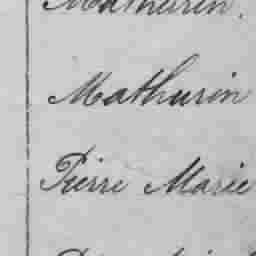 Mathurin.
Mathurin
Pierre Marie